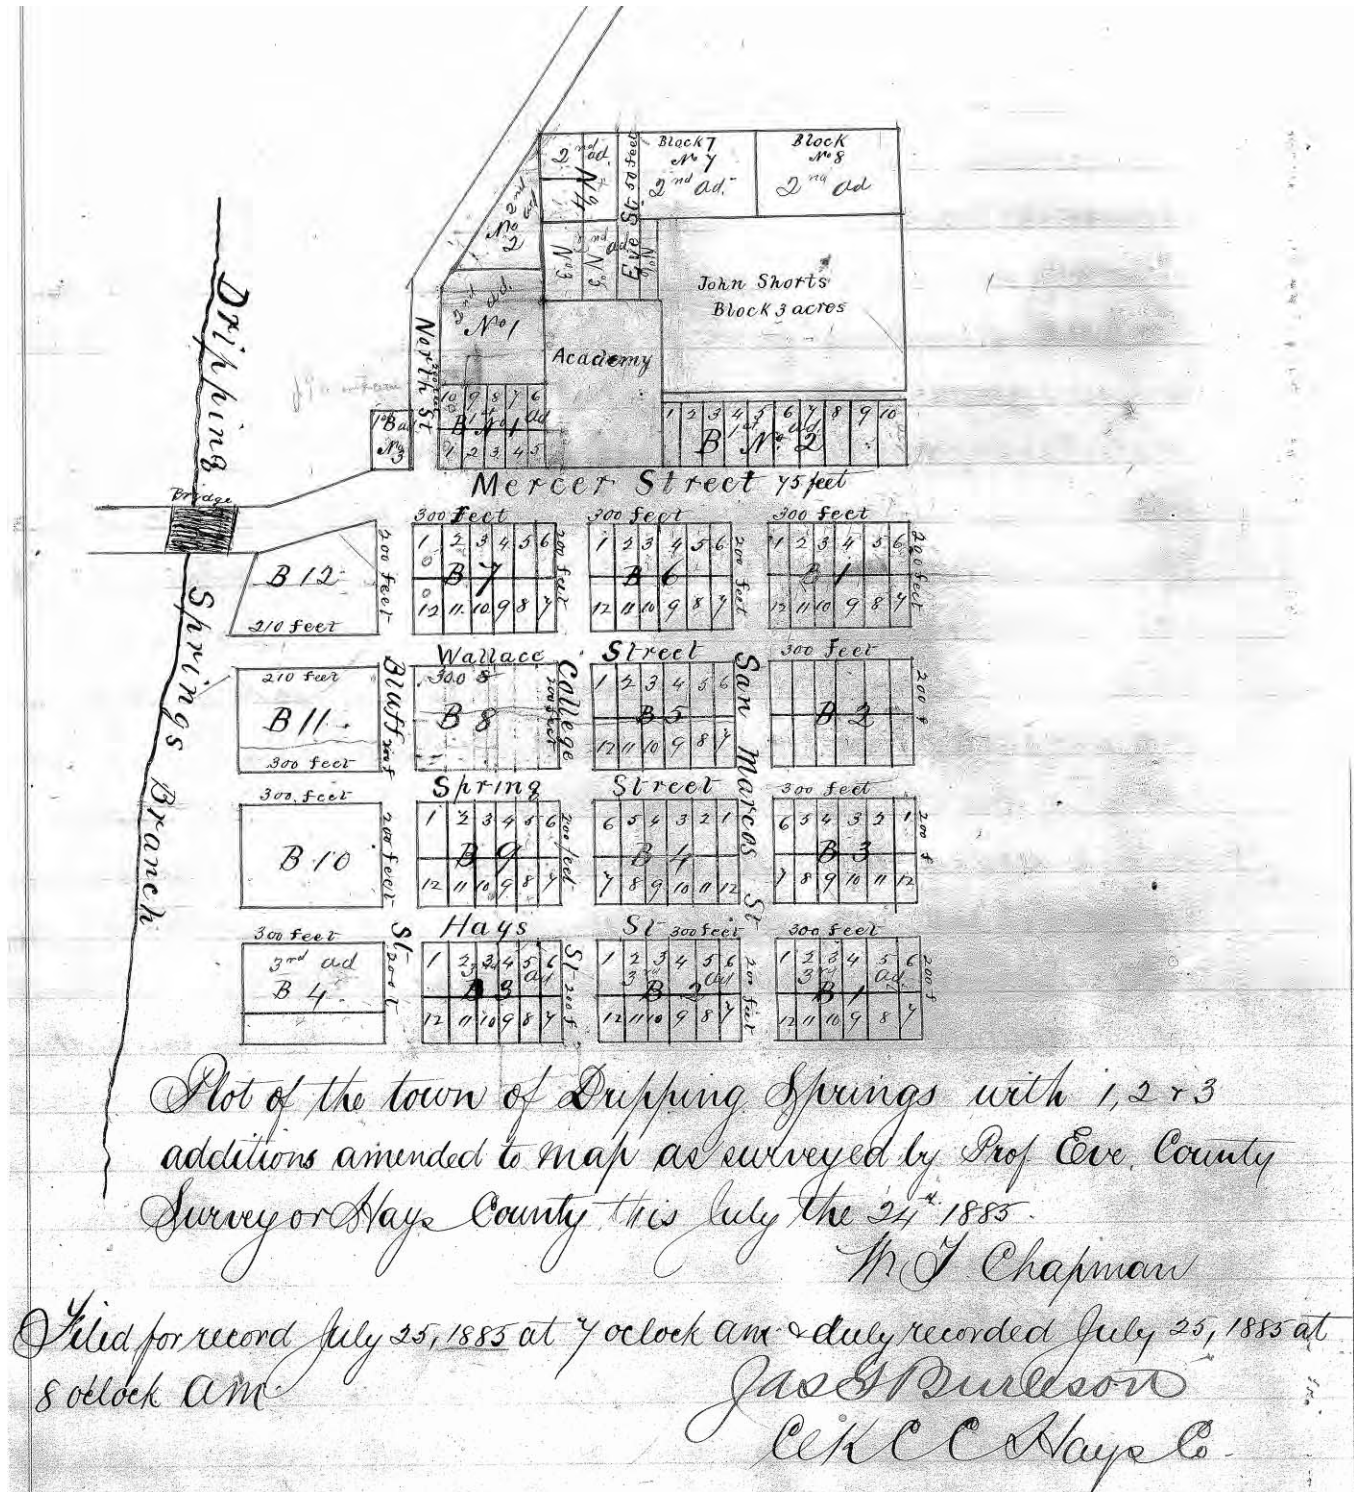 2nd ad.
No 4
Eve St. 50 feet
Block 7
No 7
2nd ad.
Block
No 8
2nd ad
2nd ad
No 2
No 3
2nd ad
No 3
No 6
John Shorts
Block 3 acres
2nd ad.
No 1
Academy
North St
10 9 8 7 6
1st ad
B No 1
1 2 3 4 5
1st ad
B
No 3
1 2 3 4 5 6 7 8 9 10
1st ad.
B No. 2
Mercer Street 75 feet
Dripping
Bridge
Springs Branch
300 Feet
1 2 3 4 5 6
B 7
12 11 10 9 8 7
200 feet
300 feet
1 2 3 4 5 6
B 6
12 11 10 9 8 7
200 feet
300 feet
1 2 3 4 5 6
B 1
12 11 10 9 8 7
200 feet
B 12
210 feet
200 feet
Wallace Street
210 feet
B 11.
300 feet
Bluff
200 f
300
B 8
200 feet
College
1 2 3 4 5 6
B 5
12 11 10 9 8 7
San Marcos St
300 Feet
B 2
200 f
Spring Street
300 feet
B 10
200 feet
1 2 3 4 5 6
B 9
12 11 10 9 8 7
200 feet
6 5 4 3 2 1
B 4
7 8 9 10 11 12
300 feet
6 5 4 3 2 1
B 3
7 8 9 10 11 12
200 f
Hays St
300 feet
3rd ad
B 4.
St
200 f
1 2 3 4 5 6
3rd ad
B 3
12 11 10 9 8 7
St
200 f
300 feet
1 2 3 4 5 6
3rd ad
B 2
12 11 10 9 8 7
200 feet
300 feet
1 2 3 4 5 6
3rd ad.
B 1
12 11 10 9 8 7
200 f
Plot of the town of Dripping Springs with 1, 2 & 3
additions amended to map as surveyed by Prof Eve. County
Surveyor Hays County this July the 24th 1885.
W. T. Chapman
Filed for record July 25, 1885 at 7 oclock am & duly recorded July 25, 1885 at
8 oclock am.
Jas G Burleson
Clk C C Hays Co.